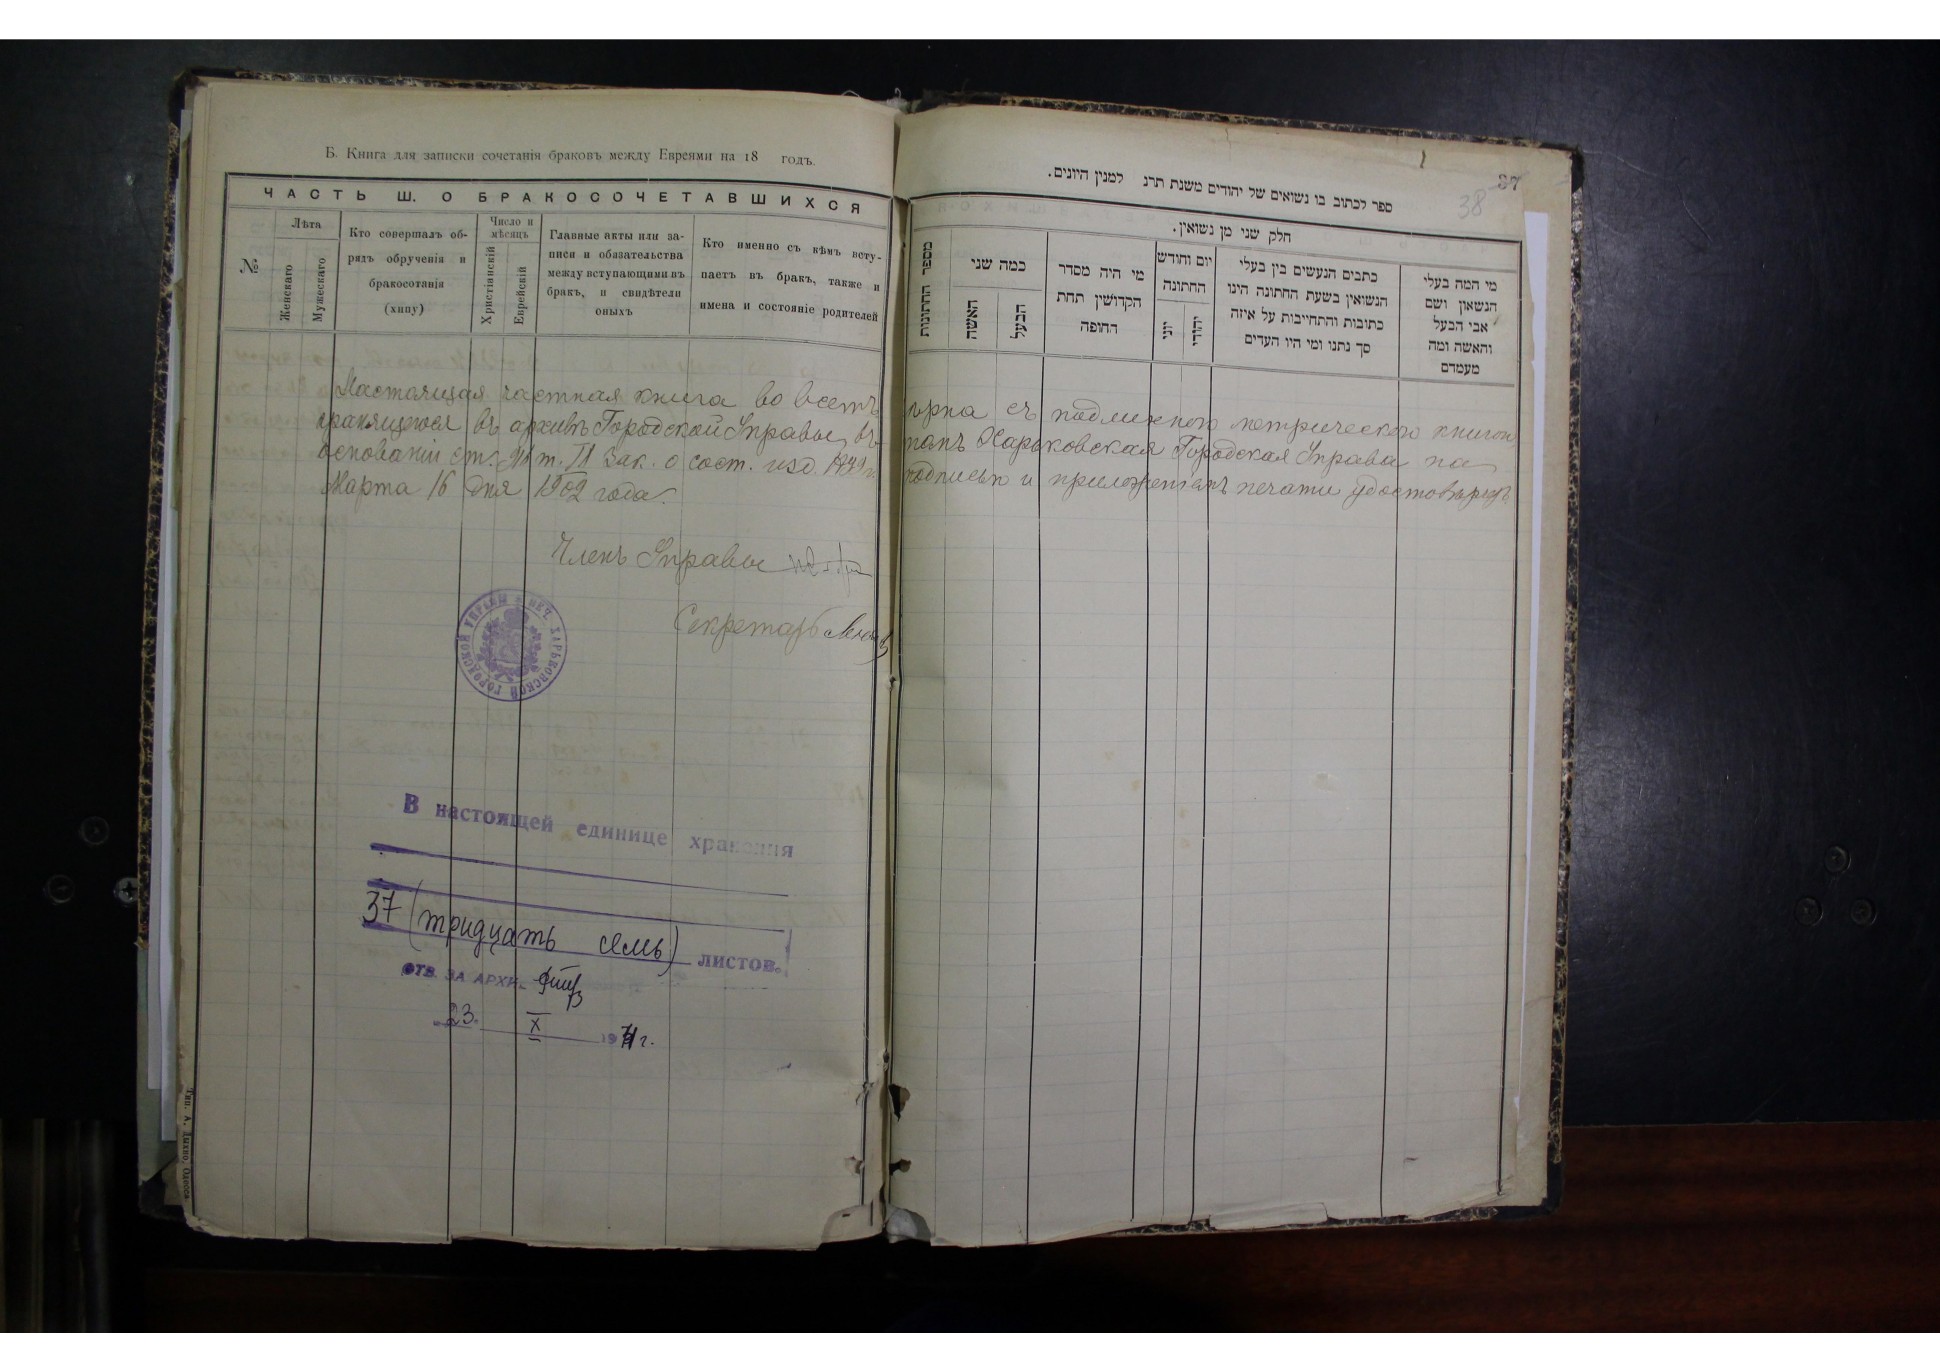 Б. Книга для записки сочетанія браковъ между Евреями на 18 годъ.
ЧАСТЬ Ш. О БРАКОСОЧЕТАВШИХСЯ
№
Лѣта
Женскаго
Мужескаго
Кто совершалъ об-
рядъ обрученія и
бракосотанія
(хипу)
Число и
мѣсяцъ
Христіянскій
Еврейскій
Главные акты или за-
писи и обязательства
между вступающими въ
бракъ, и свидѣтели
оныхъ
Кто именно съ кѣмъ всту-
паетъ въ бракъ, также и
имена и состояніе родителей
Настоящая частная книга во всемъ
хранящейся въ архивѣ Городской Управы, въ
основаніи ст. т. IX Зак. о сост. изд. 1899 г.
Марта 16 дня 1902 года.
Членъ Управы
Секретарь
ПЕЧ. ХАРЬКОВСКОЙ ГОРОДСКОЙ УПРАВЫ
В настоящей единице хранения
37 (тридцать семь) листов.
ОТВ. ЗА АРХИ
23. X 1971 г.
Тип. А. Дыхно, Одесса
37
38
ספר לכתוב בו נשואים של יהודים משנת תרנ למנין היונים.
חלק שני מן נשואין.
מספר החתונות
כמה שני
האשה
הבעל
מי היה מסדר
הקדושין תחת
החופה
יום וחודש
החתונה
יוני
יהודי
כתבים הנעשים בין בעלי
הנשואין בשעת החתונה הינו
כתובות והתחייבות על איזה
סך נתנו ומי היו העדים
מי המה בעלי
הנשאון ושם
אבי הבעל
והאשה ומה
מעמדם
вѣрна съ подлинною метрическою книгою
чемъ Харьковская Городская Управа на
подписью и приложеніемъ печати удостовѣряетъ